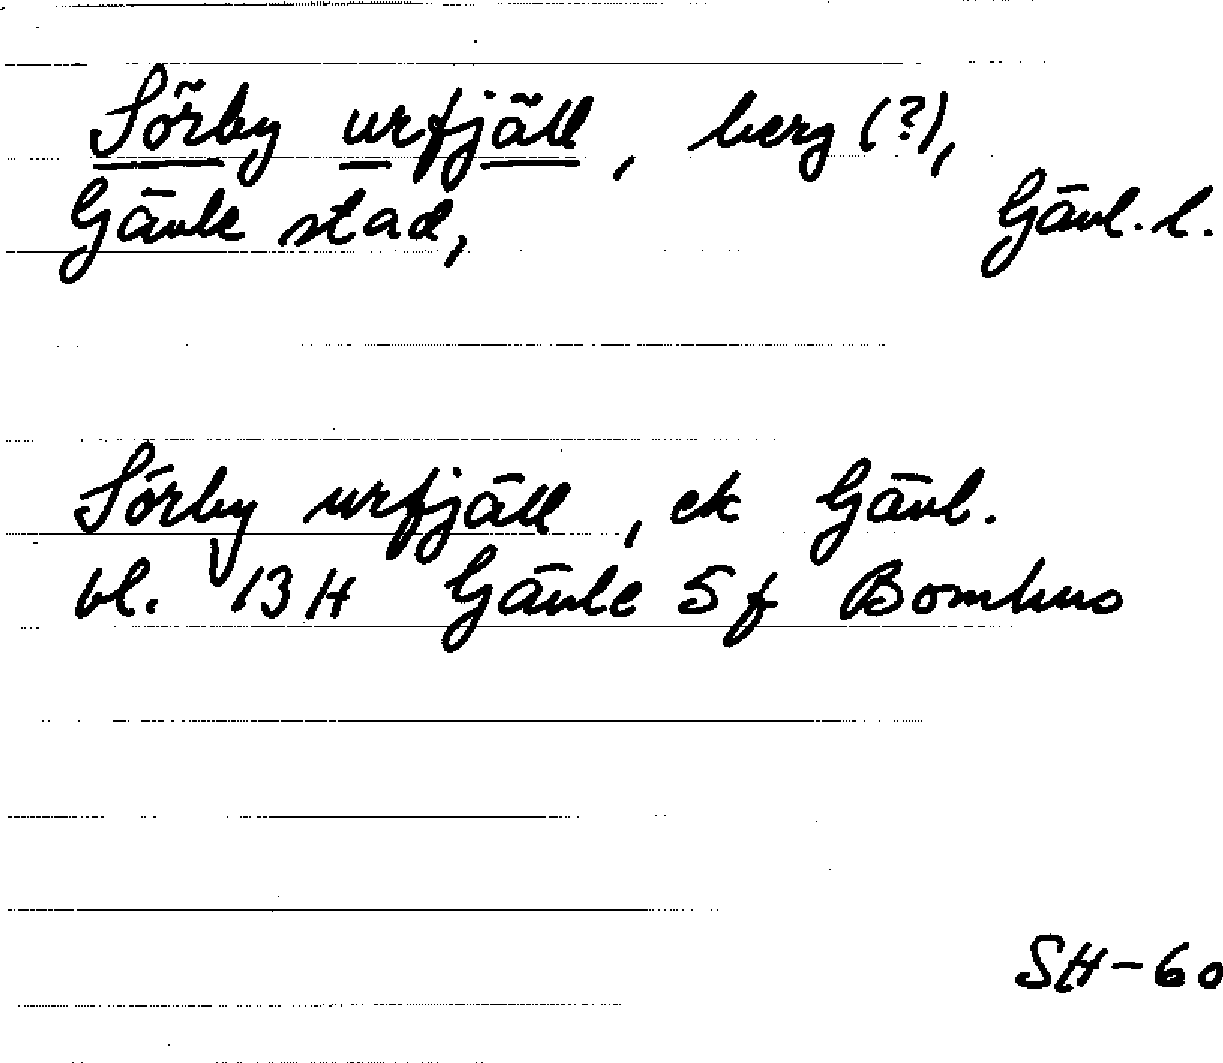 Sörby urfjäll, berg (?),
Gävle stad, Gävl. l.
Sörby urfjäll, ek Gävl.
bl. 13 H Gävle Sf Bomhus
SH-60